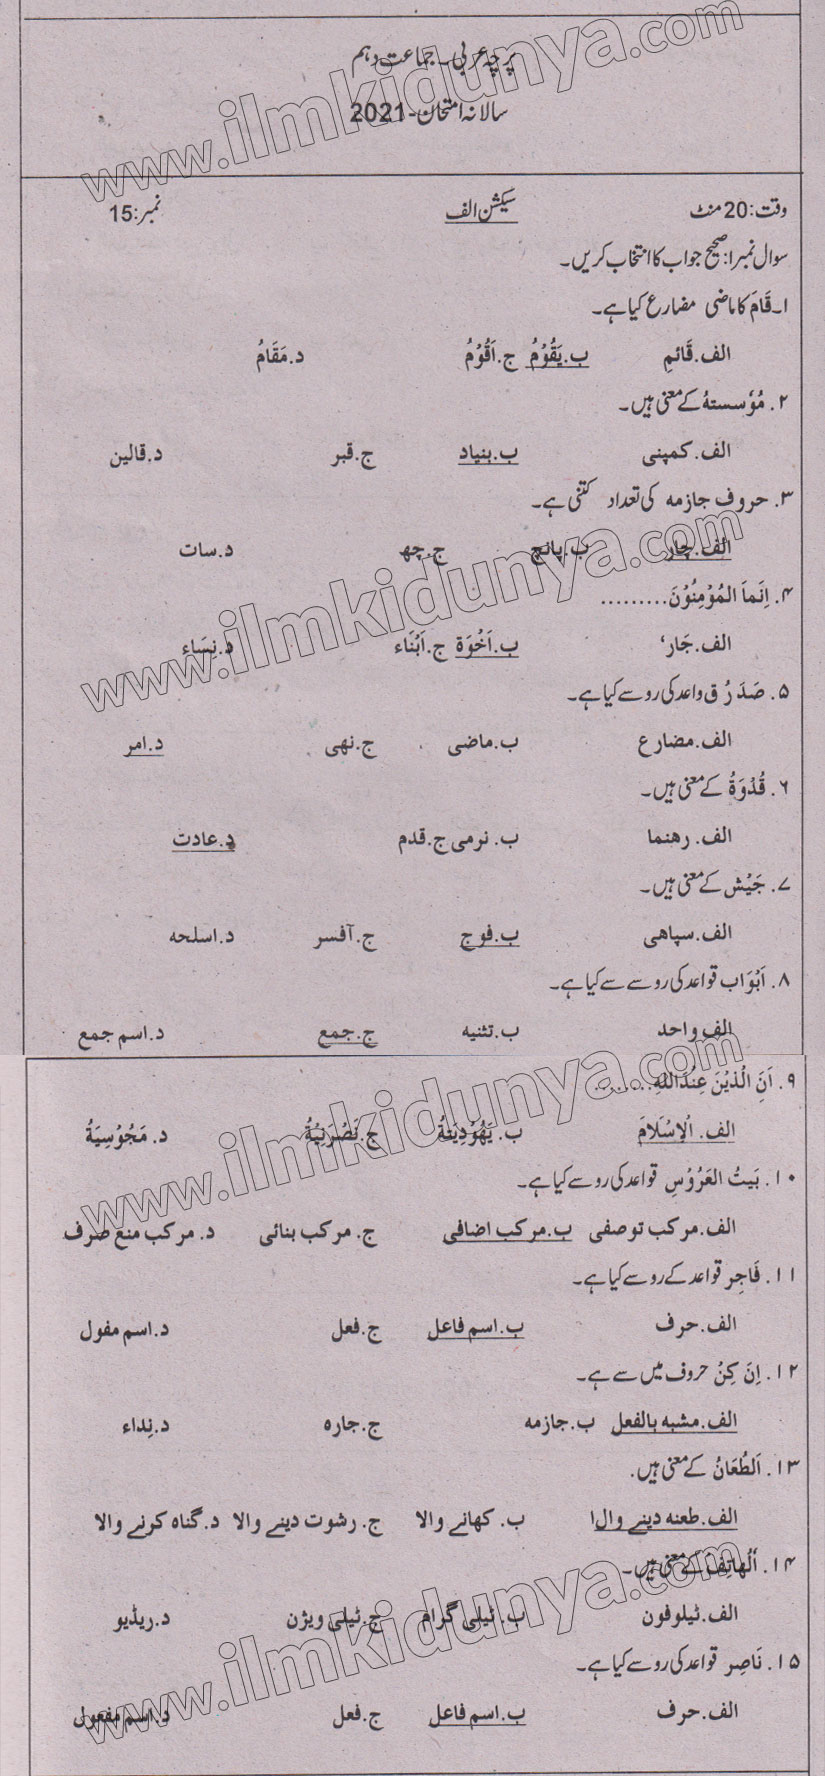 پرچہ عربی۔ جماعت دہم
سالانہ امتحان-2021
وقت:20 منٹ سیکشن الف نمبر:15
سوال نمبر۱: صحیح جواب کا انتخاب کریں۔
۱۔ قَامَ کا ماضی مضارع کیا ہے۔
الف.قَائمِ ب.یَقُوْمُ ج.اَقُوْمُ د.مَقَامُ
۲. مُؤسستهُ کے معنی ہیں۔
الف.کمپنی ب.بنیاد ج.قبر د.قالین
۳. حروف جازمه کی تعداد کتنی ہے۔
الف.چار ب.پانچ ج.چھ د.سات
۴. اِنَماَ المُوْمِنُوْنَ.........
الف.جَار‘ ب.اَخْوَة ج.اَبْنَاء د.نِسَاء
۵. صَدَ رُ ق واعد کی رو سے کیا ہے۔
الف.مضارع ب.ماضی ج.نهی د.امر
۶. قُدْوَةُ کے معنی ہیں۔
الف. رهنما ب. نرمی ج.قدم د.عادت
۷. جَیْش کے معنی ہیں۔
الف.سپاهی ب.فوج ج.آفسر د.اسلحه
۸. اَبْوَاب قواعد کی رو سے سے کیا ہے۔
الف.واحد ب.تثنیه ج.جمع د.اسم جمع
۹. اَنَ الْذیْنَ عِنْدَاللهِ........
الف. الْاِسْلَامَ ب. یَهُوْدِیَتهُ ج.نَصْرَنِیْةُ د. مَجُوْسِیَةُ
۱۰. بَیتُ العَرُوْسِ قواعد کی رو سے کیا ہے۔
الف.مرکب توصفی ب.مرکب اضافی ج. مرکب بنائی د. مرکب منع صرف
۱۱. فَاجِر قواعد کے رو سے کیا ہے۔
الف. حرف ب.اسم فاعل ج.فعل د.اسم مفول
۱۲. اِنَ کِنْ حروف میں سے ہے۔
الف.مشبه بالفعل ب.جازمه ج.جاره د.نِداء
۱۳. اَلطُعَانُ کے معنی ہیں.
الف.طعنه دینے والا ب. کھانے والا ج. رشوت دینے والا د.گناه کرنے والا
۱۴. اَلْهاتِفَ کے معنی ہیں۔
الف.ٹیلوفون ب.ٹیلی گرام ج.ٹیلی ویژن د.ریڈیو
۱۵. نَاصِر قواعد کی رو سے کیا ہے۔
الف.حرف ب.اسم فاعل ج.فعل د.اسم مفعول
www.ilmkidunya.com
www.ilmkidunya.com
www.ilmkidunya.com
www.ilmkidunya.com